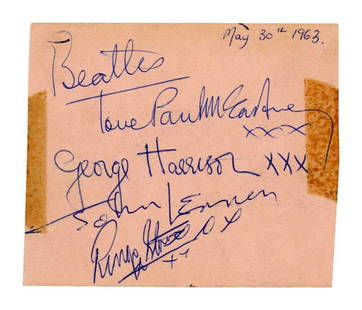 May 30th 1963.
Beatles
love Paul McCartney
xxx
George Harrison xxx
John Lennon
Ringo Starr xx